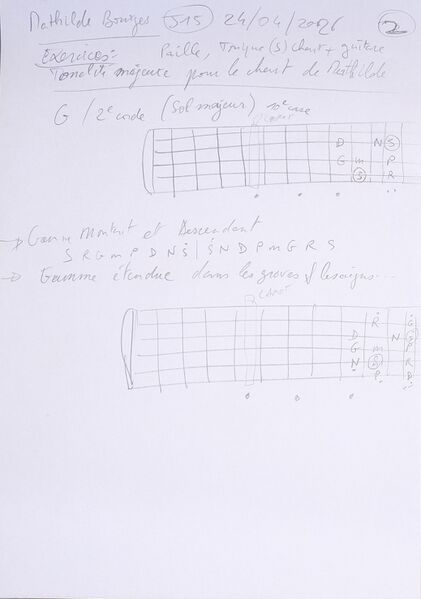 Mathilde Bourges J15 24/04/2026 2
Exercices: Paille, Tonique (S) chant + guitare
Tonalité majeure pour le chant de Mathilde
G / 2e corde (Sol majeur) 10e case
capot
D N S
G m P
S R
→ Gamme Montant et Descendant
S R G m P D N Ṡ | Ṡ N D P m G R S
→ Gamme étendue dans les graves / les aigus...
capot
R G
D N S
G m P
N S R
P D